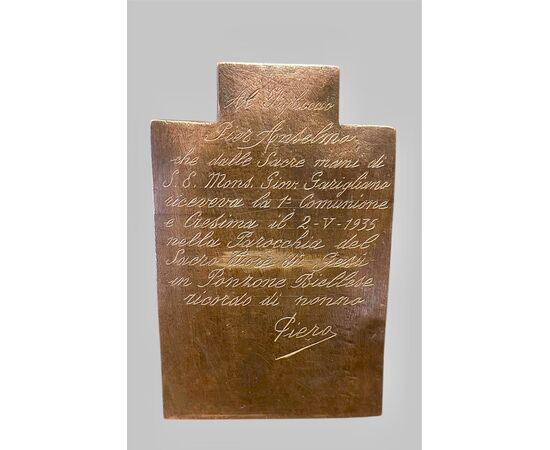 Al Figlioccio
Pier Anselmo,
che dalle Sacre mani di
S. E. Mons. Giov. Garigliano
riceveva la 1ª Comunione
e Cresima il 2-V-1935
nella Parocchia del
Sacro Cuore di Gesù
in Ponzone Biellese
ricordo di nonno
Piero